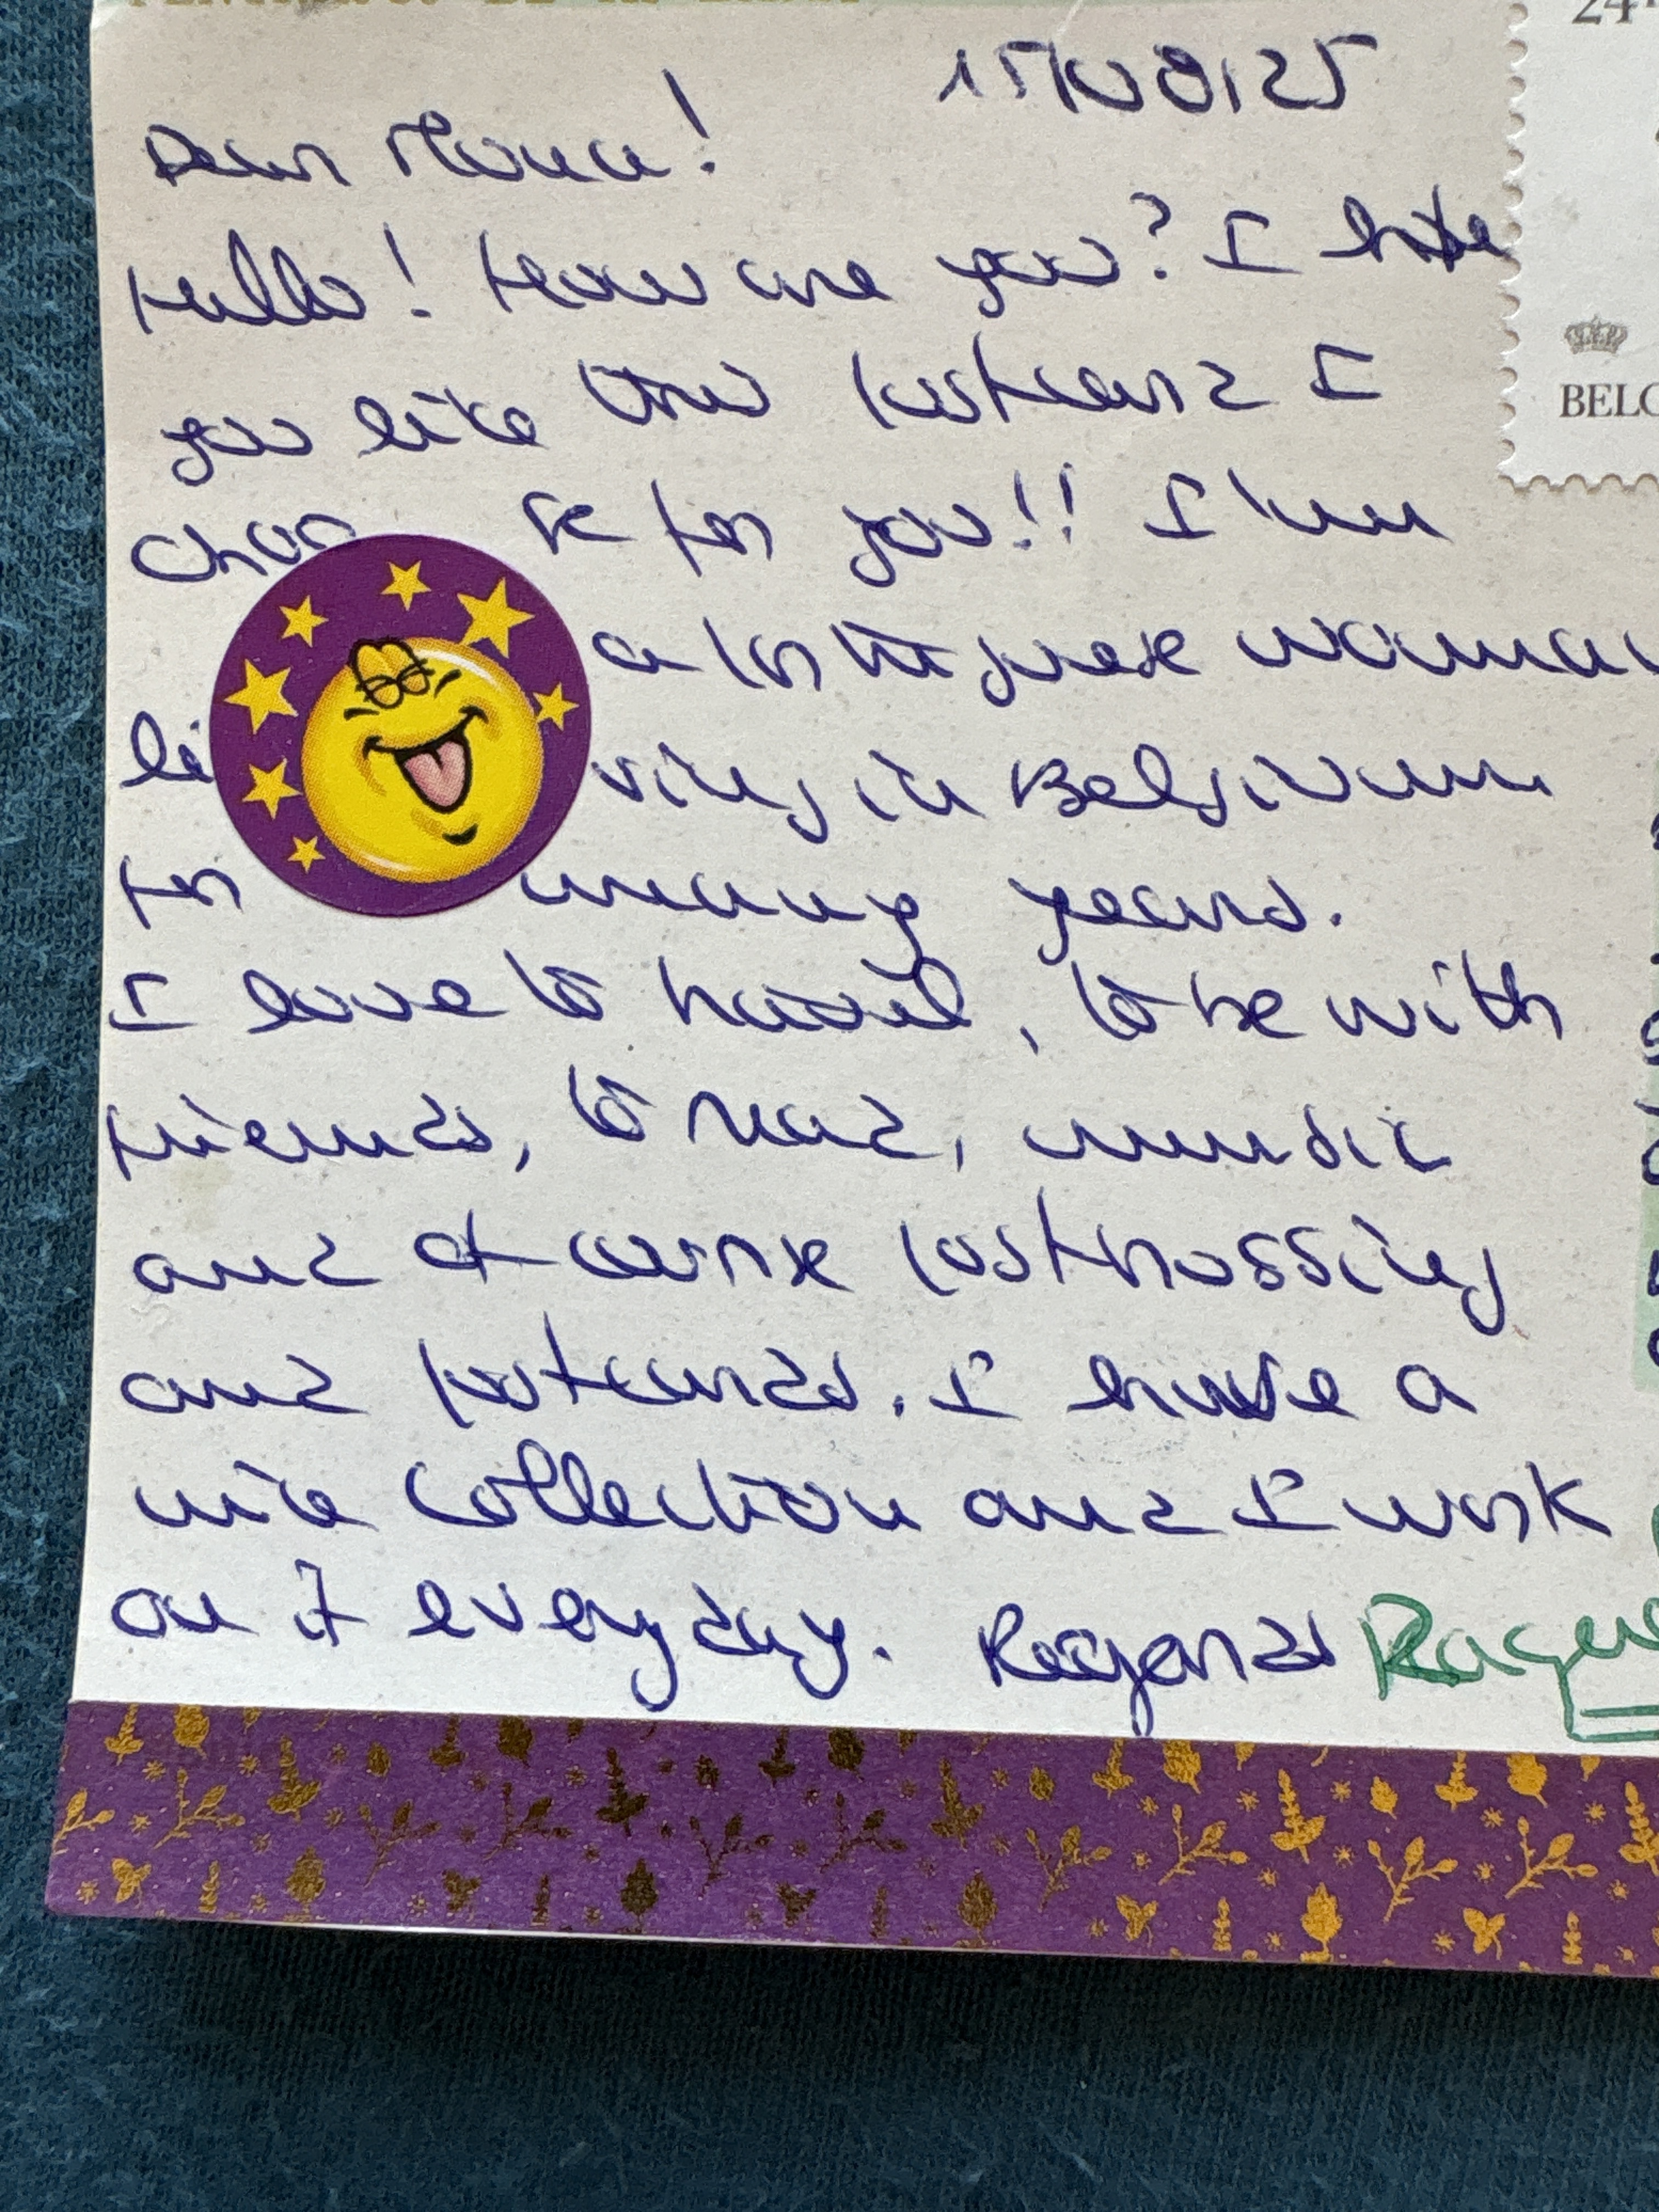 24
15/08/25
Dear
Hello! How are you? I hope
you like this postcard I
chose for you!! I am
a Portuguese woman
living in Belgium
for many years.
I love to travel, to be with
friends, to read, music
and of course postcrossing
and postcards. I have a
nice collection and I work
on it everyday. Regards Raque
BELG